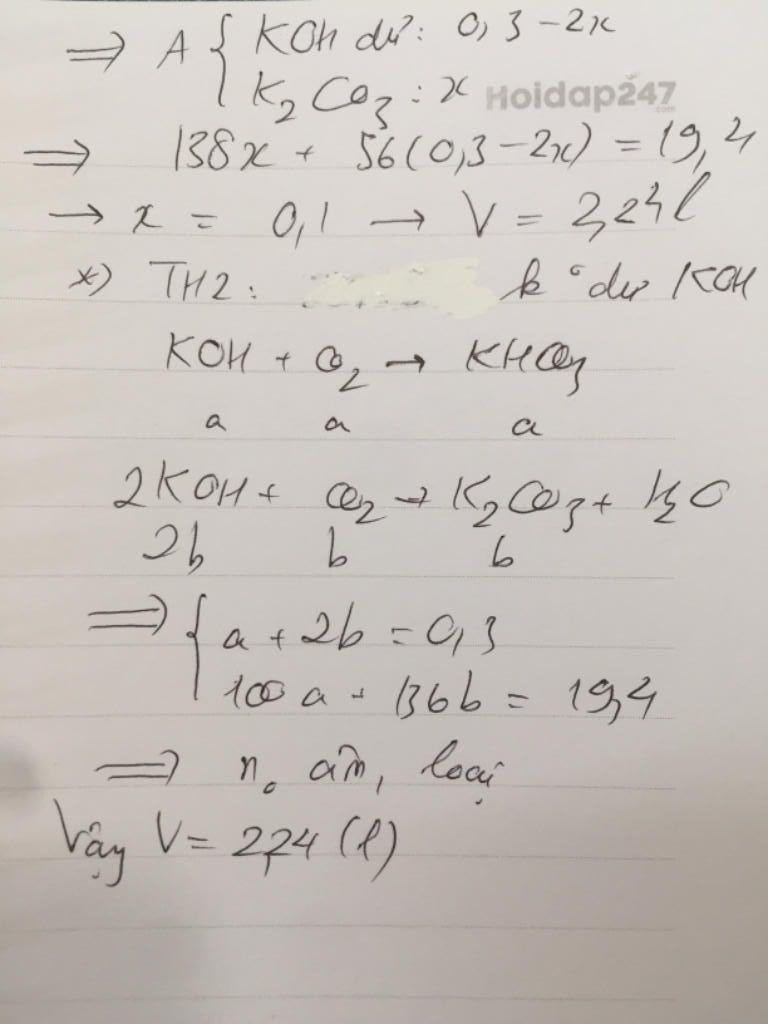 ⇒ A { KOH dư: 0,3 - 2x
K₂CO₃ : x
Hoidap247.com
⇒ 138x + 56(0,3 - 2x) = 19,4
→ x = 0,1 → V = 2,24 l
*) TH2: k° dư KOH
KOH + CO₂ → KHCO₃
a a a
2KOH + CO₂ → K₂CO₃ + H₂O
2b b b
⇒ { a + 2b = 0,3
100a + 136b = 19,4
⇒ n₀ âm, loại
Vậy V = 2,24 (l)